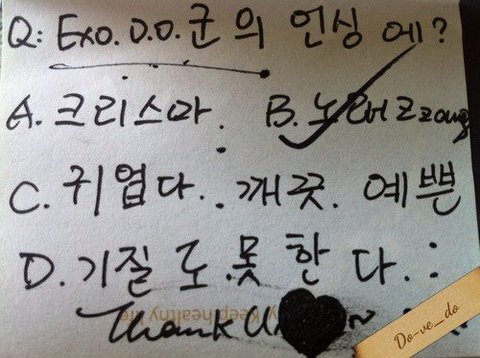 Q: Exo. D.O.군의 인싱에?
A. 크리스마. B. 노래zzang
C. 귀엽다.. 깨끗. 예쁜
D. 기질도 못한다..:
Thank U ♥~
Do-ve_do